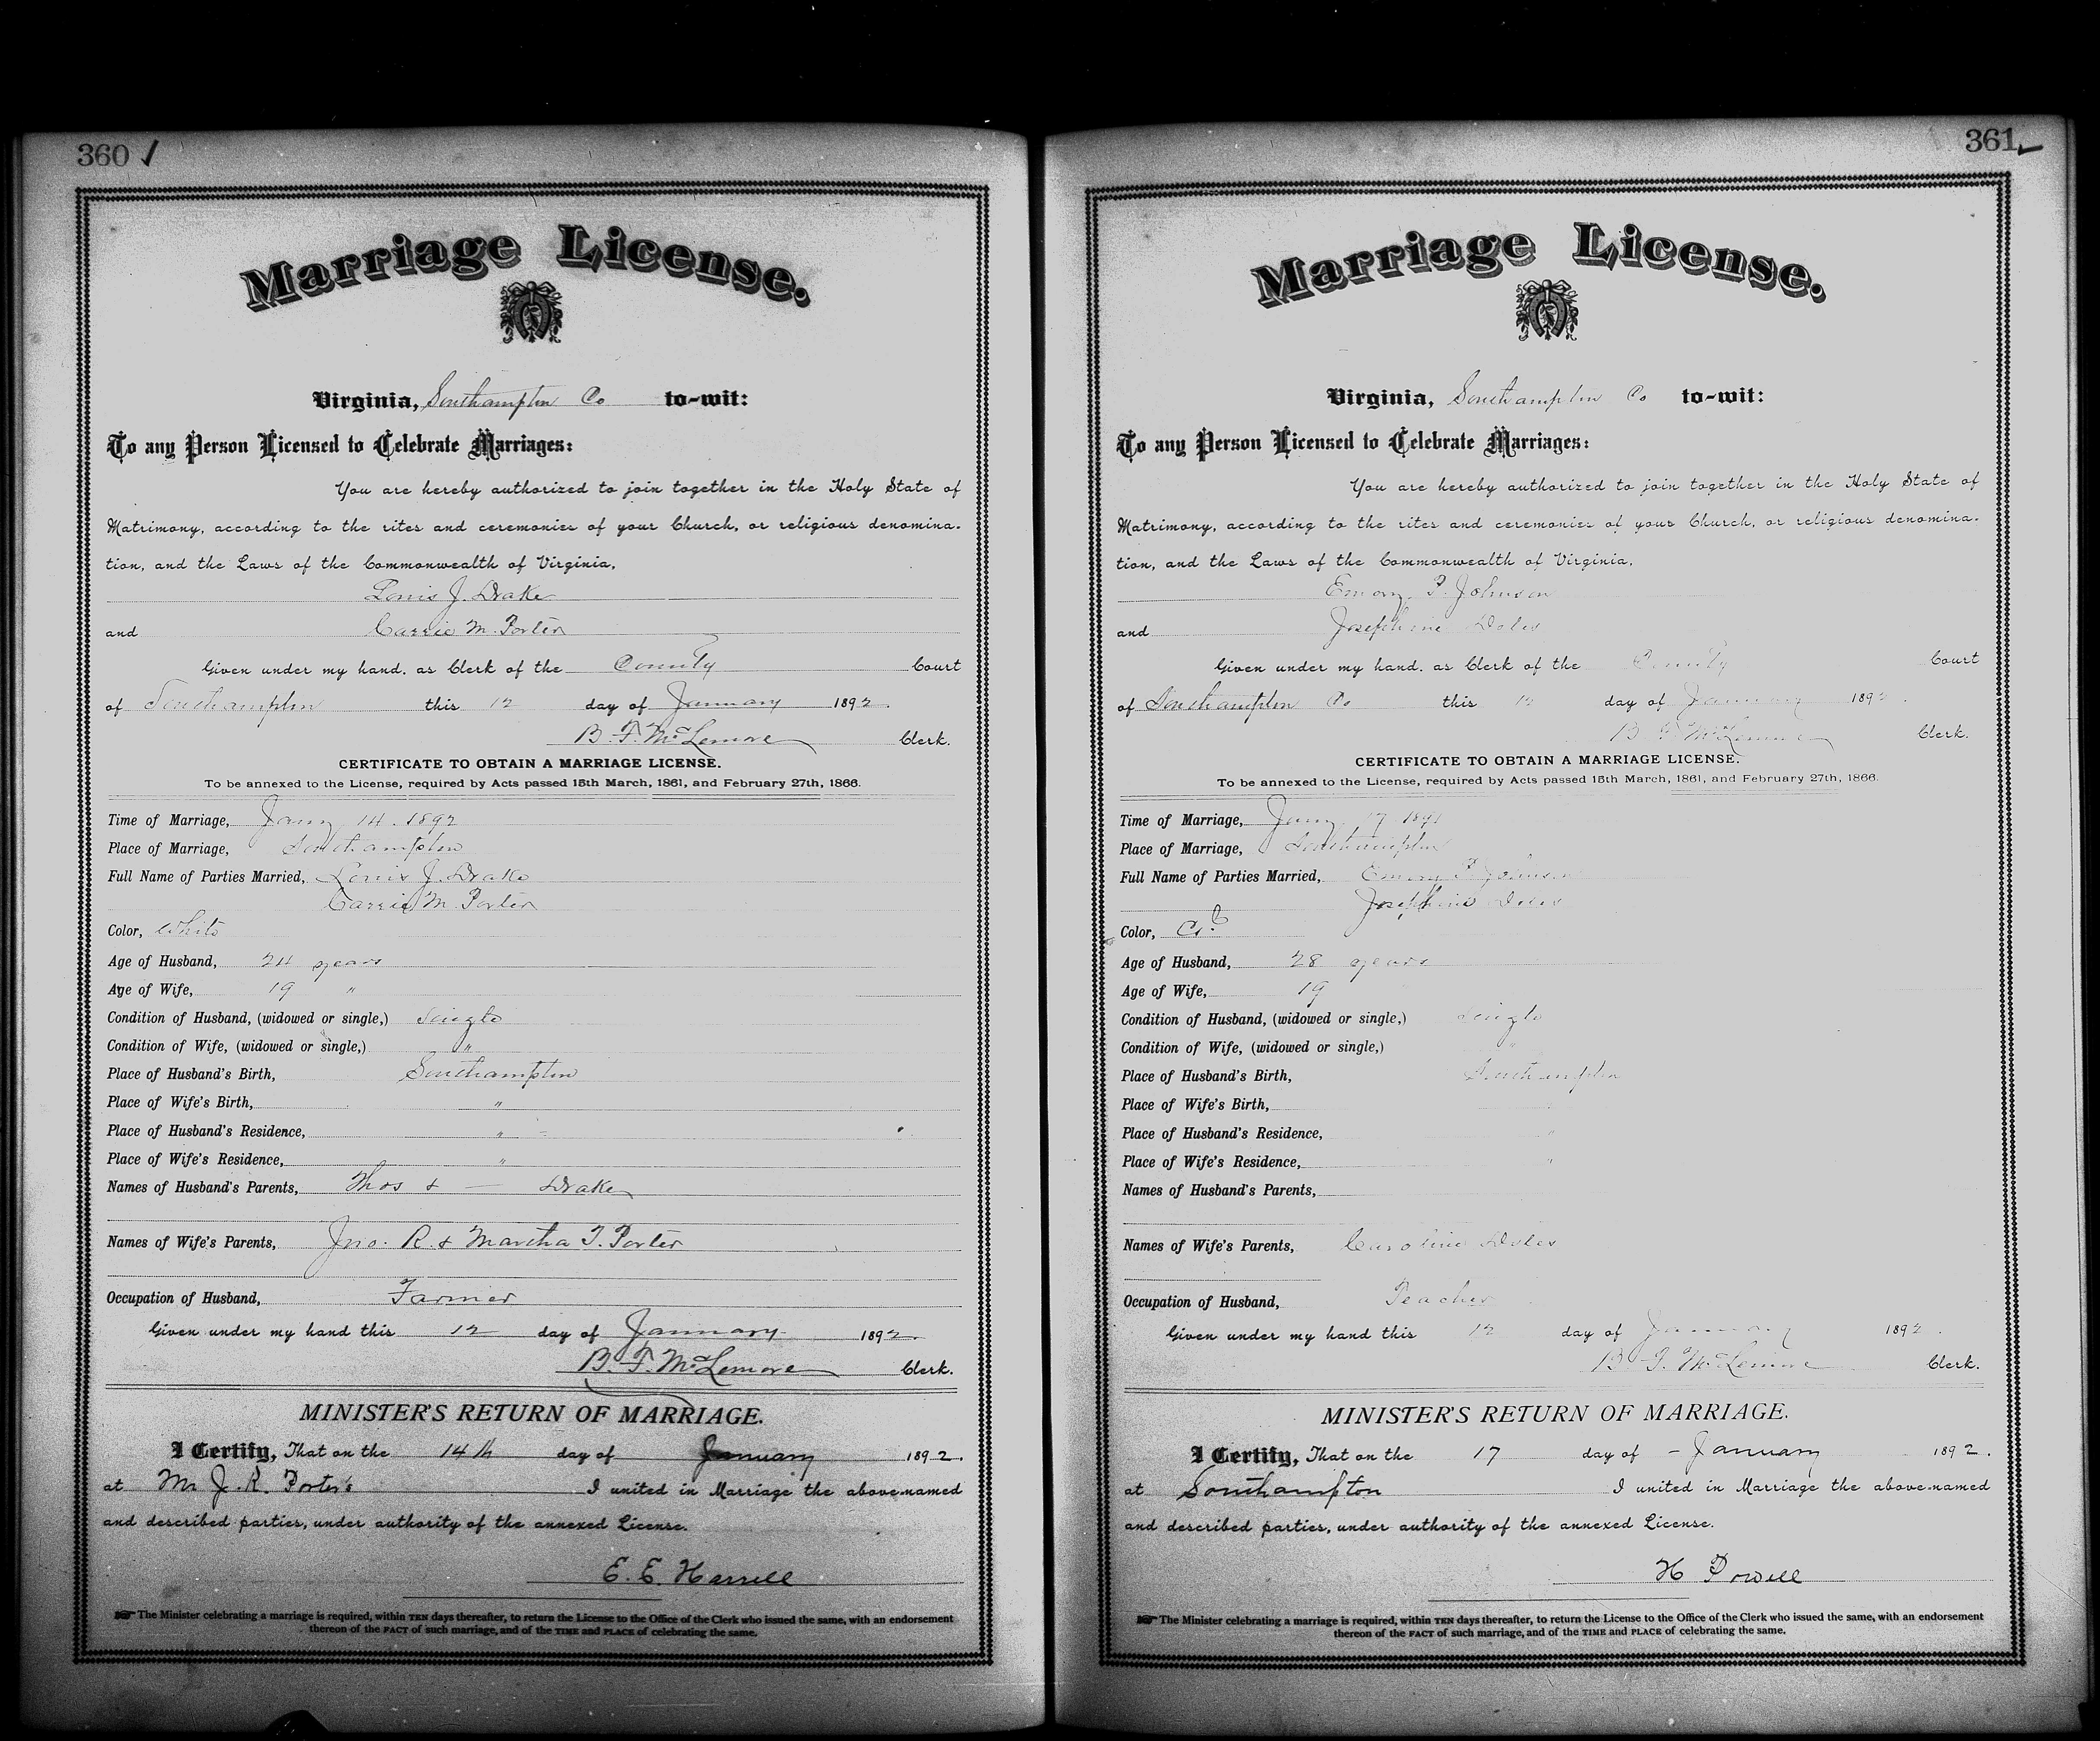 360
Marriage License.
Virginia, Southampton Co to-wit:
To any Person Licensed to Celebrate Marriages:
You are hereby authorized to join together in the Holy State of
Matrimony, according to the rites and ceremonies of your Church, or religious denomina-
tion, and the Laws of the Commonwealth of Virginia,
Louis J. Drake
and Carrie M. Porter
Given under my hand, as Clerk of the County Court
of Southampton this 12 day of January 1892.
B. F. McLemore Clerk.
CERTIFICATE TO OBTAIN A MARRIAGE LICENSE.
To be annexed to the License, required by Acts passed 15th March, 1861, and February 27th, 1866.
Time of Marriage, Jany 14. 1892
Place of Marriage, Southampton
Full Name of Parties Married, Louis J. Drake
Carrie M. Porter
Color, White
Age of Husband, 24 years
Age of Wife, 19 "
Condition of Husband, (widowed or single,) Single
Condition of Wife, (widowed or single,) "
Place of Husband's Birth, Southampton
Place of Wife's Birth, "
Place of Husband's Residence, "
Place of Wife's Residence, "
Names of Husband's Parents, Thos & — Drake
Names of Wife's Parents, Jno. R. & Martha T. Porter
Occupation of Husband, Farmer
Given under my hand this 12 day of January 1892.
B. F. McLemore Clerk.
MINISTER'S RETURN OF MARRIAGE.
I Certify, That on the 14th day of January 1892.
at Mr J. R. Porter's I united in Marriage the above-named
and described parties, under authority of the annexed License.
E. E. Harrell
☞ The Minister celebrating a marriage is required, within TEN days thereafter, to return the License to the Office of the Clerk who issued the same, with an endorsement
thereon of the FACT of such marriage, and of the TIME and PLACE of celebrating the same.
361
Marriage License.
Virginia, Southampton Co to-wit:
To any Person Licensed to Celebrate Marriages:
You are hereby authorized to join together in the Holy State of
Matrimony, according to the rites and ceremonies of your Church, or religious denomina-
tion, and the Laws of the Commonwealth of Virginia,
Emory P. Johnson
and Josephine Doles
Given under my hand, as Clerk of the County Court
of Southampton Co this 12 day of January 1892.
B. F. McLemore Clerk.
CERTIFICATE TO OBTAIN A MARRIAGE LICENSE.
To be annexed to the License, required by Acts passed 15th March, 1861, and February 27th, 1866.
Time of Marriage, Jany 17 189
Place of Marriage, Southampton
Full Name of Parties Married, Emory P. Johnson
Josephine Doles
Color, Cold
Age of Husband, 28 years
Age of Wife, 19
Condition of Husband, (widowed or single,) Single
Condition of Wife, (widowed or single,) "
Place of Husband's Birth, Southampton
Place of Wife's Birth, "
Place of Husband's Residence, "
Place of Wife's Residence, "
Names of Husband's Parents,
Names of Wife's Parents, Caroline Doles
Occupation of Husband, Teacher
Given under my hand this 12 day of January 1892.
B. F. McLemore Clerk.
MINISTER'S RETURN OF MARRIAGE.
I Certify, That on the 17 day of - January 1892.
at Southampton I united in Marriage the above-named
and described parties, under authority of the annexed License.
H Powell
☞ The Minister celebrating a marriage is required, within TEN days thereafter, to return the License to the Office of the Clerk who issued the same, with an endorsement
thereon of the FACT of such marriage, and of the TIME and PLACE of celebrating the same.